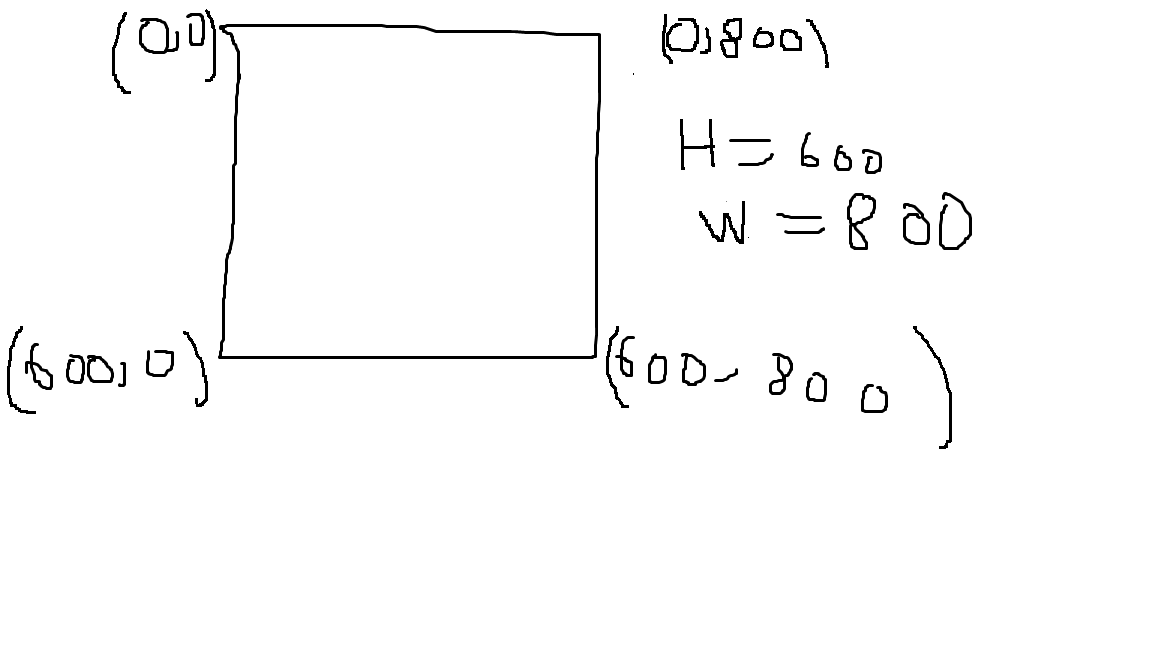 (0,0) (0,800)
H = 600
W = 800
(600,0) (600,800)